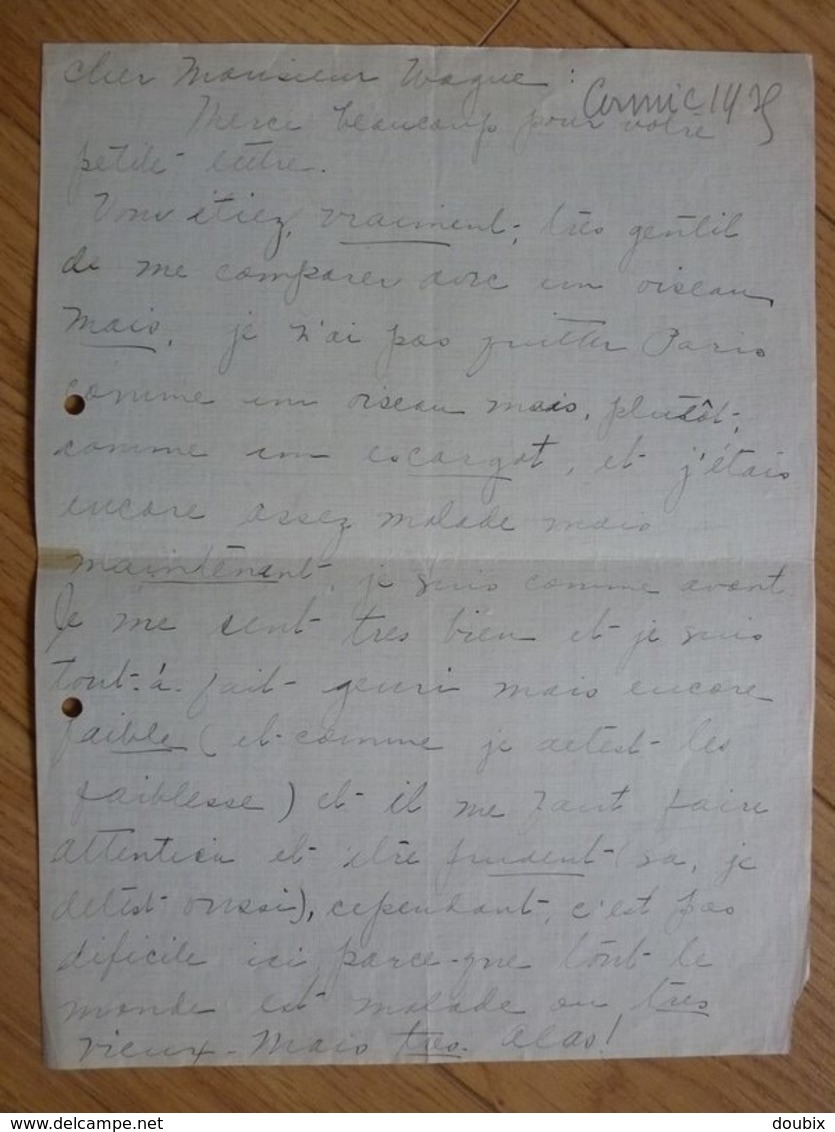 Cher Monsieur Wague :
Merci beaucoup pour votre
petite lettre.
Vous étiez, vraiment, très gentil
de me comparer avec un oiseau,
mais, je n'ai pas quitter Paris
comme un oiseau mais, plutôt,
comme un escargot, et j'étais
encore assez malade mais
maintenant, je suis comme avant.
Je me sent tres bien et je suis
tout-à-fait gueri mais encore
faible (et comme je detest les
faiblesse) et il me faut faire
attention et être prudent (sa, je
detest aussi), cependant, c'est pas
dificile ici parce-que tout le
monde est malade ou tres
vieux - Mais tres. Alas!
www.delcampe.net
doubix